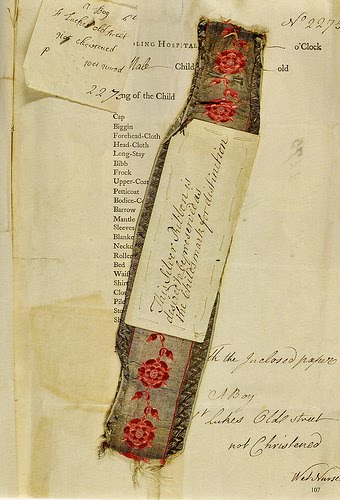 A Boy
St Lukes old street
not christened
wet nursd
No 2275
LING HOSPITAL
o'Clock
Male Child
old
2275
ng of the Child
Cap
Biggin
Forehead-Cloth
Head-Cloth
Long-Stay
Bibb
Frock
Upper-Coat
Petticoat
Bodice-C
Barrow
Mantle
Sleeves
Blanke
Necko
Roller
Bed
Wais
Shir
Clou
Pilc
Sto
Sh
This Silver Ribbon is
desired to be preserved as
the Childs mark for distinction
th the Inclosed paper
A Boy
St Lukes Old street
not Christened
Wet Nurse
107